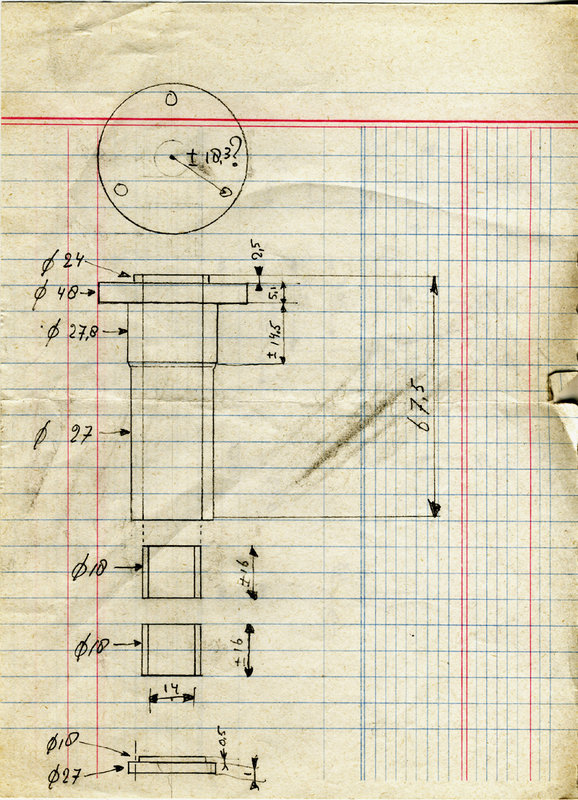 ± 18,3?
φ 24
2,5
φ 48
5,1
φ 27,8
± 14,5
φ 27
67,5
φ18
± 16
φ18
± 16
14
φ18
0,5
φ27
1